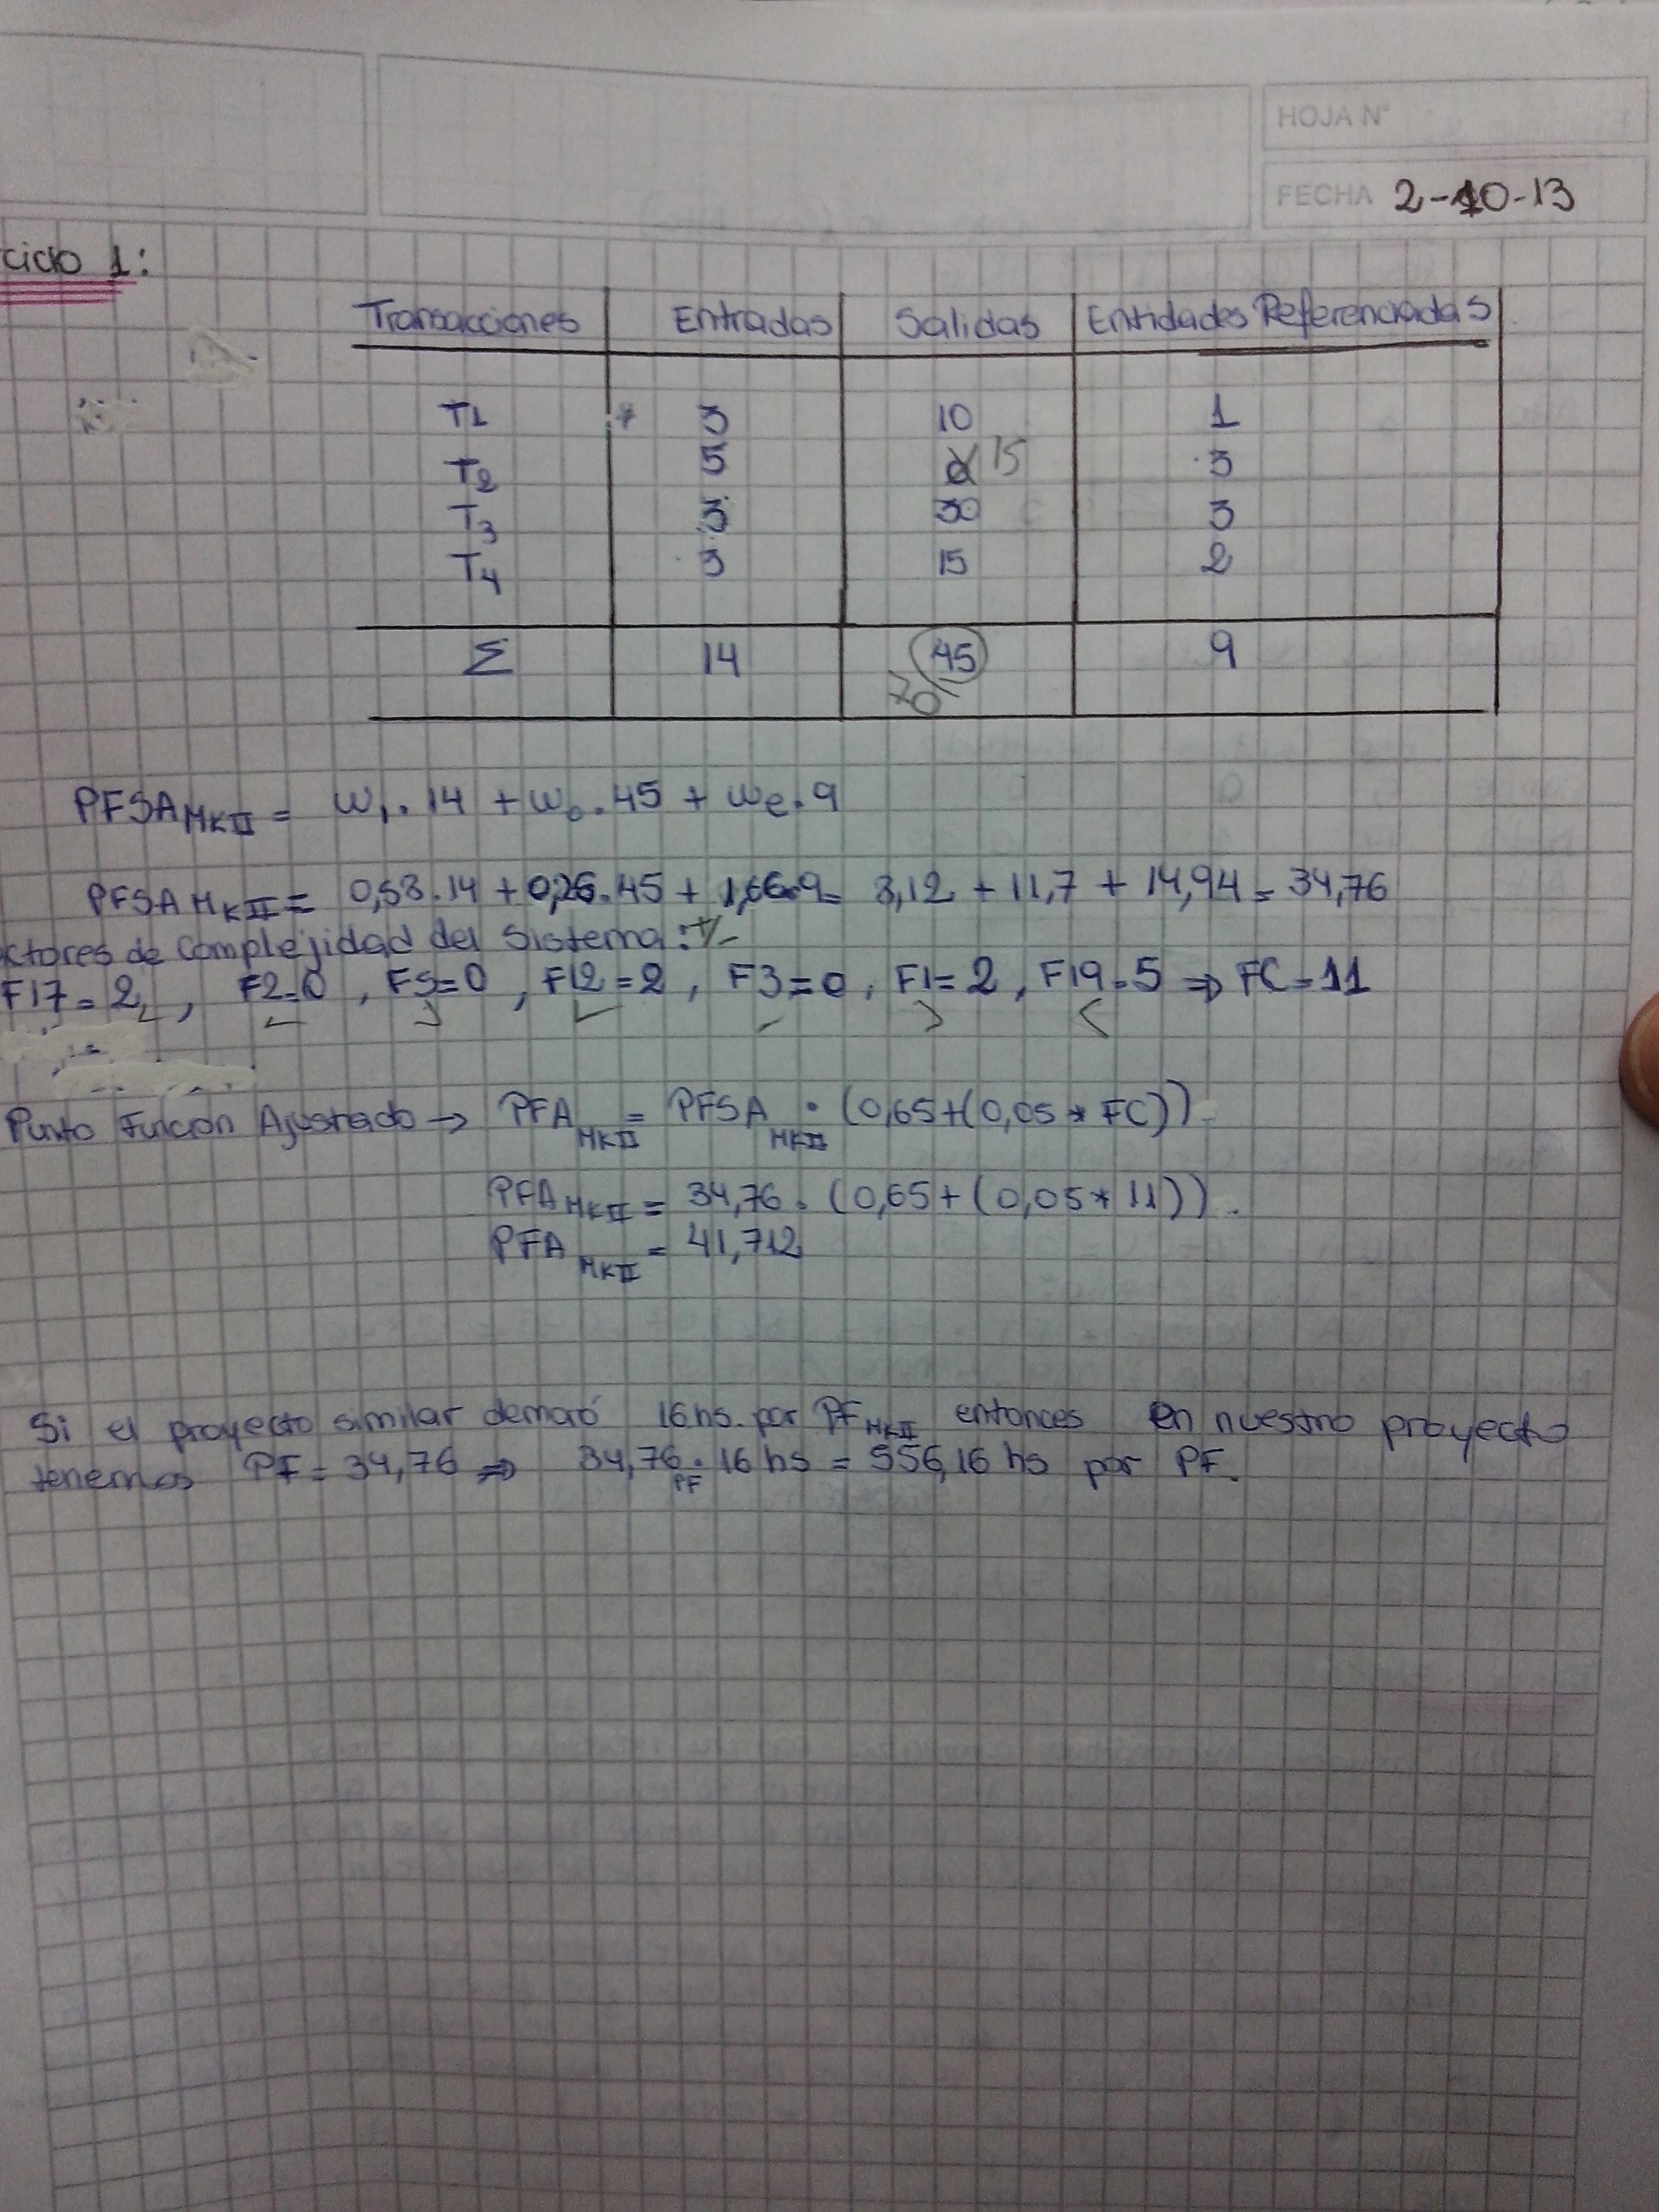 HOJA Nº
FECHA 2-10-13
cicio 1:
Transacciones Entradas Salidas Entidades Referenciadas
T1 3 10 1
T2 5 0 15 3
T3 3 30 3
T4 3 15 2
Σ 14 45 9
70
PFSA MKII = Wi. 14 + Wo. 45 + We. 9
PFSA MKII = 0,58.14 + 0,26.45 + 1,66.9 = 8,12 + 11,7 + 14,94 = 34,76
ctores de Complejidad del Sistema: +/-
F17 = 2, F2=0, F5=0, F12=2, F3=0, F1=2, F19=5 ⇒ FC=11
Punto Función Ajustado → PFA MKII = PFSA MKII • (0,65+(0,05 * FC))
PFA MKII = 34,76 . (0,65+(0,05*11)).
PFA MKII = 41,712
Si el proyecto similar demoró 16 hs. por PF MKII entonces en nuestro proyecto
tenemos PF = 34,76 ⇒ 34,76 PF . 16 hs = 556,16 hs por PF.